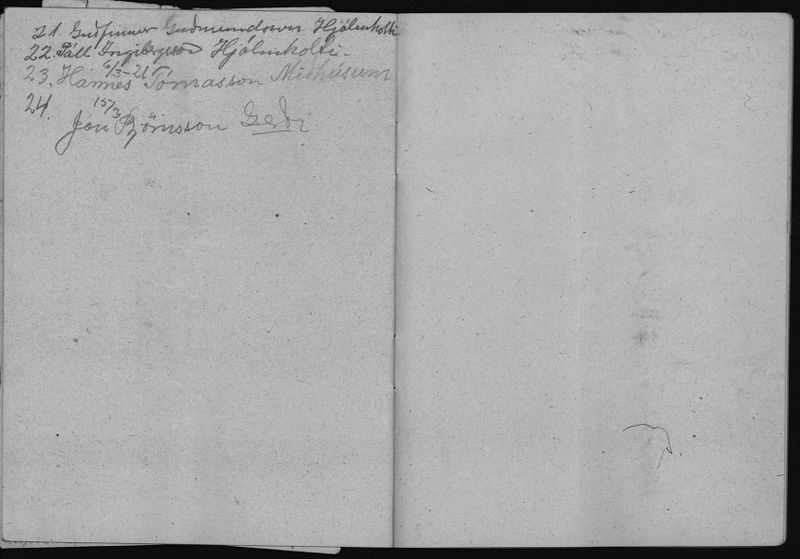 21. Guðfinnur Guðmundsson Hjálmholti
22. Páll Ingibergsson Hjálmholti.
6/3-21
23. Hannes Tómasson Miðhúsum
15/3
24. Jón Björnsson Gerði